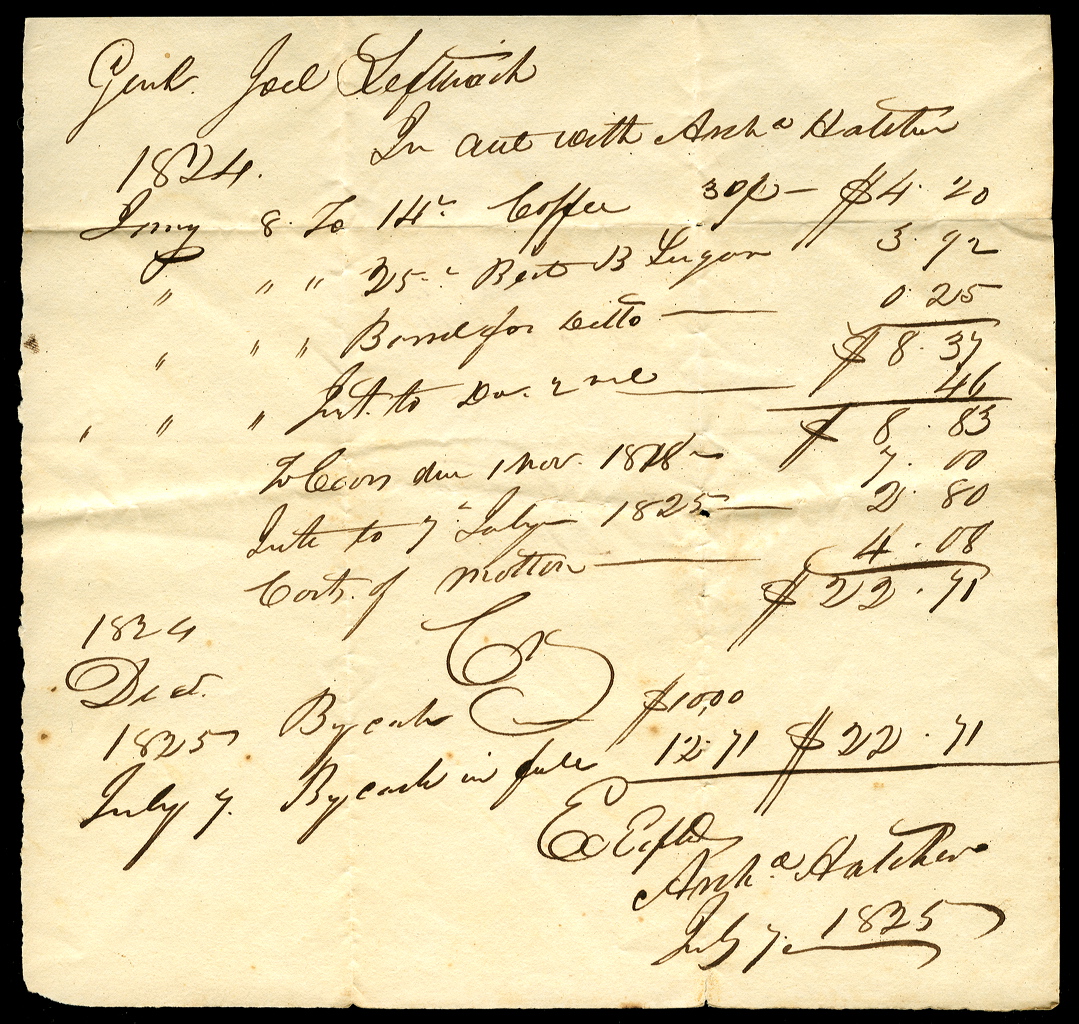 Genl. Joel Leftwich
In acct with Archd Hatcher
1824.
Jany 8. To 14lb Coffee 30¢ — $4.20
" " " 25lb Best B Sugar 3.92
" " " Barrel for ditto — 0.25
$8.37
" " " Int. to Do. — 46
$8.83
To Corn due 1 Nov. 1818 7.00
Inte to 7th July 1825 — 2.80
Costs of motion — 4.08
$22.71
1824
Decr. By cash $10.00
1825
July 7. By cash in full 12.71 $22.71
Archd Hatcher
July 7. 1825